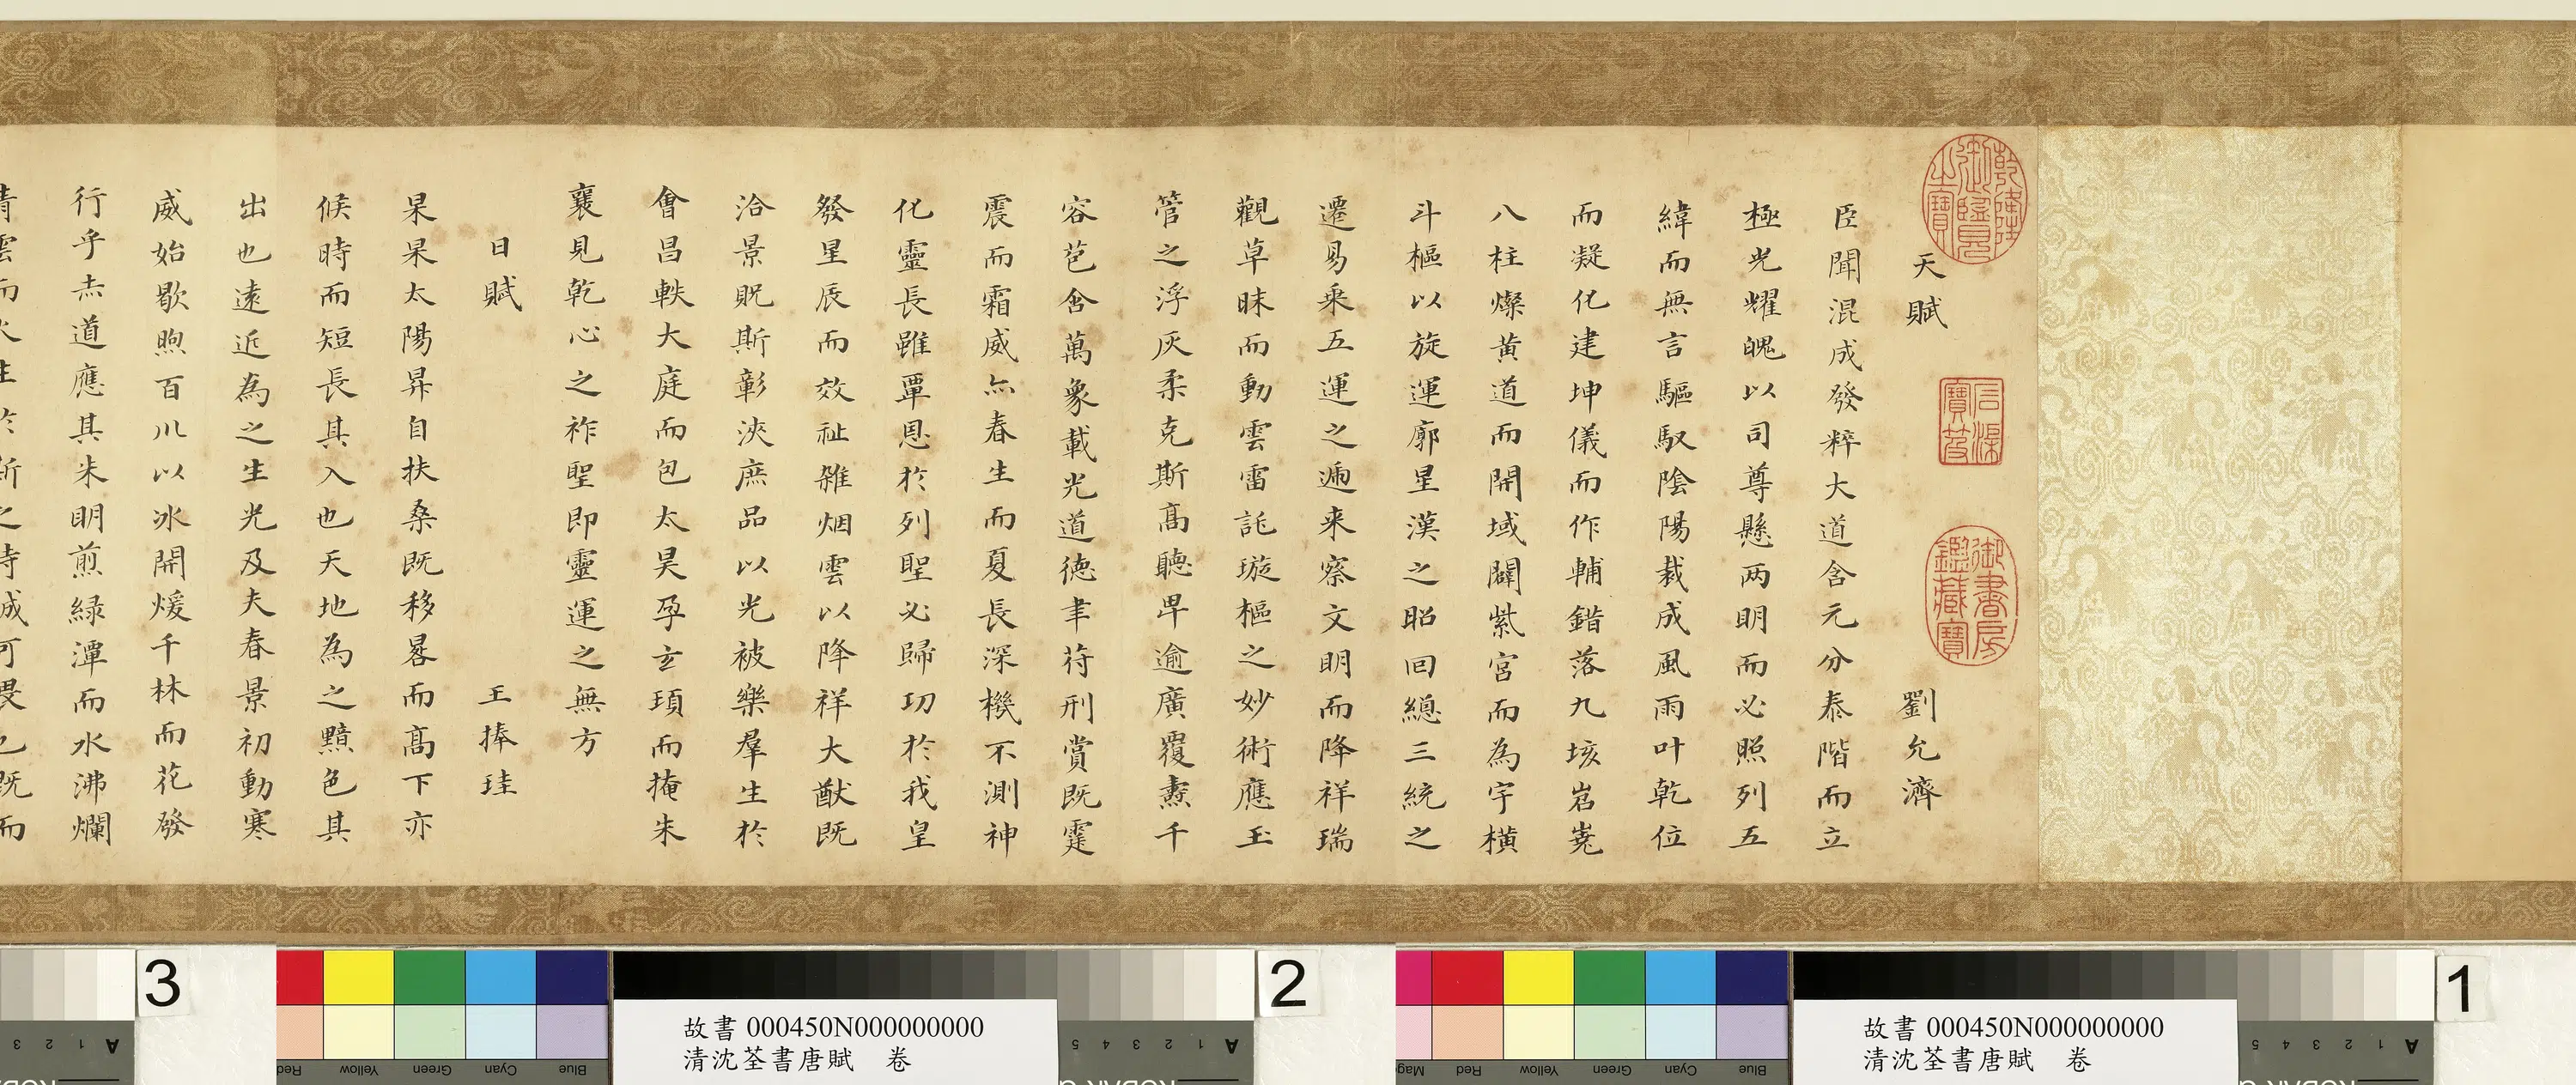 天賦 劉允濟
臣聞混成發粹大道含元分泰階而立
極光耀魄以司尊懸两明而必照列五
緯而無言驅馭陰陽裁成風雨叶乾位
而凝化建坤儀而作輔錯落九垓岧嶤
八柱燦黄道而開域闢紫宮而為宇橫
斗樞以旋運廓星漢之昭回緫三統之
遷易乘五運之遞来察文明而降祥瑞
觀草昧而動雲雷託璇樞之妙術應玉
管之浮灰柔克斯高聽卑逾廣覆燾千
容苞含萬象載光道德聿符刑賞既霆
震而霜威亦春生而夏長深機不測神
化靈長雖覃恩於列聖必歸功於我皇
發星辰而效祉雜烟雲以降祥大猷既
洽景貺斯彰浹庶品以光被樂羣生於
會昌軼大庭而包太昊孕玄頊而掩朱
襄見乾心之祚聖即靈運之無方
日賦 王捧珪
杲杲太陽昇自扶桑既移晷而高下亦
候時而短長其入也天地為之黯色其
出也遠近為之生光及夫春景初動寒
威始歇煦百川以冰開煖千林而花發
行乎赤道應其朱明煎綠潭而水沸爛
乾隆御覽之寶
石渠寶笈
御書房鑑藏寶
3
2
1
故書 000450N000000000
清沈荃書唐賦 卷
故書 000450N000000000
清沈荃書唐賦 卷
Red Yellow Green Cyan Blue
Red Yellow Green Cyan Blue
A 1 2 3
A 1 2 3 4 5
A 1 2 3 4 5